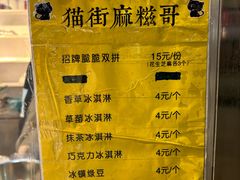 猫街麻糍哥
招牌脆脆双拼 15元/份
(花生芝麻各3个)
香草冰淇淋 4元/个
草莓冰淇淋 4元/个
抹茶冰淇淋 4元/个
巧克力冰淇淋 4元/个
冰镇绿豆 4元/个